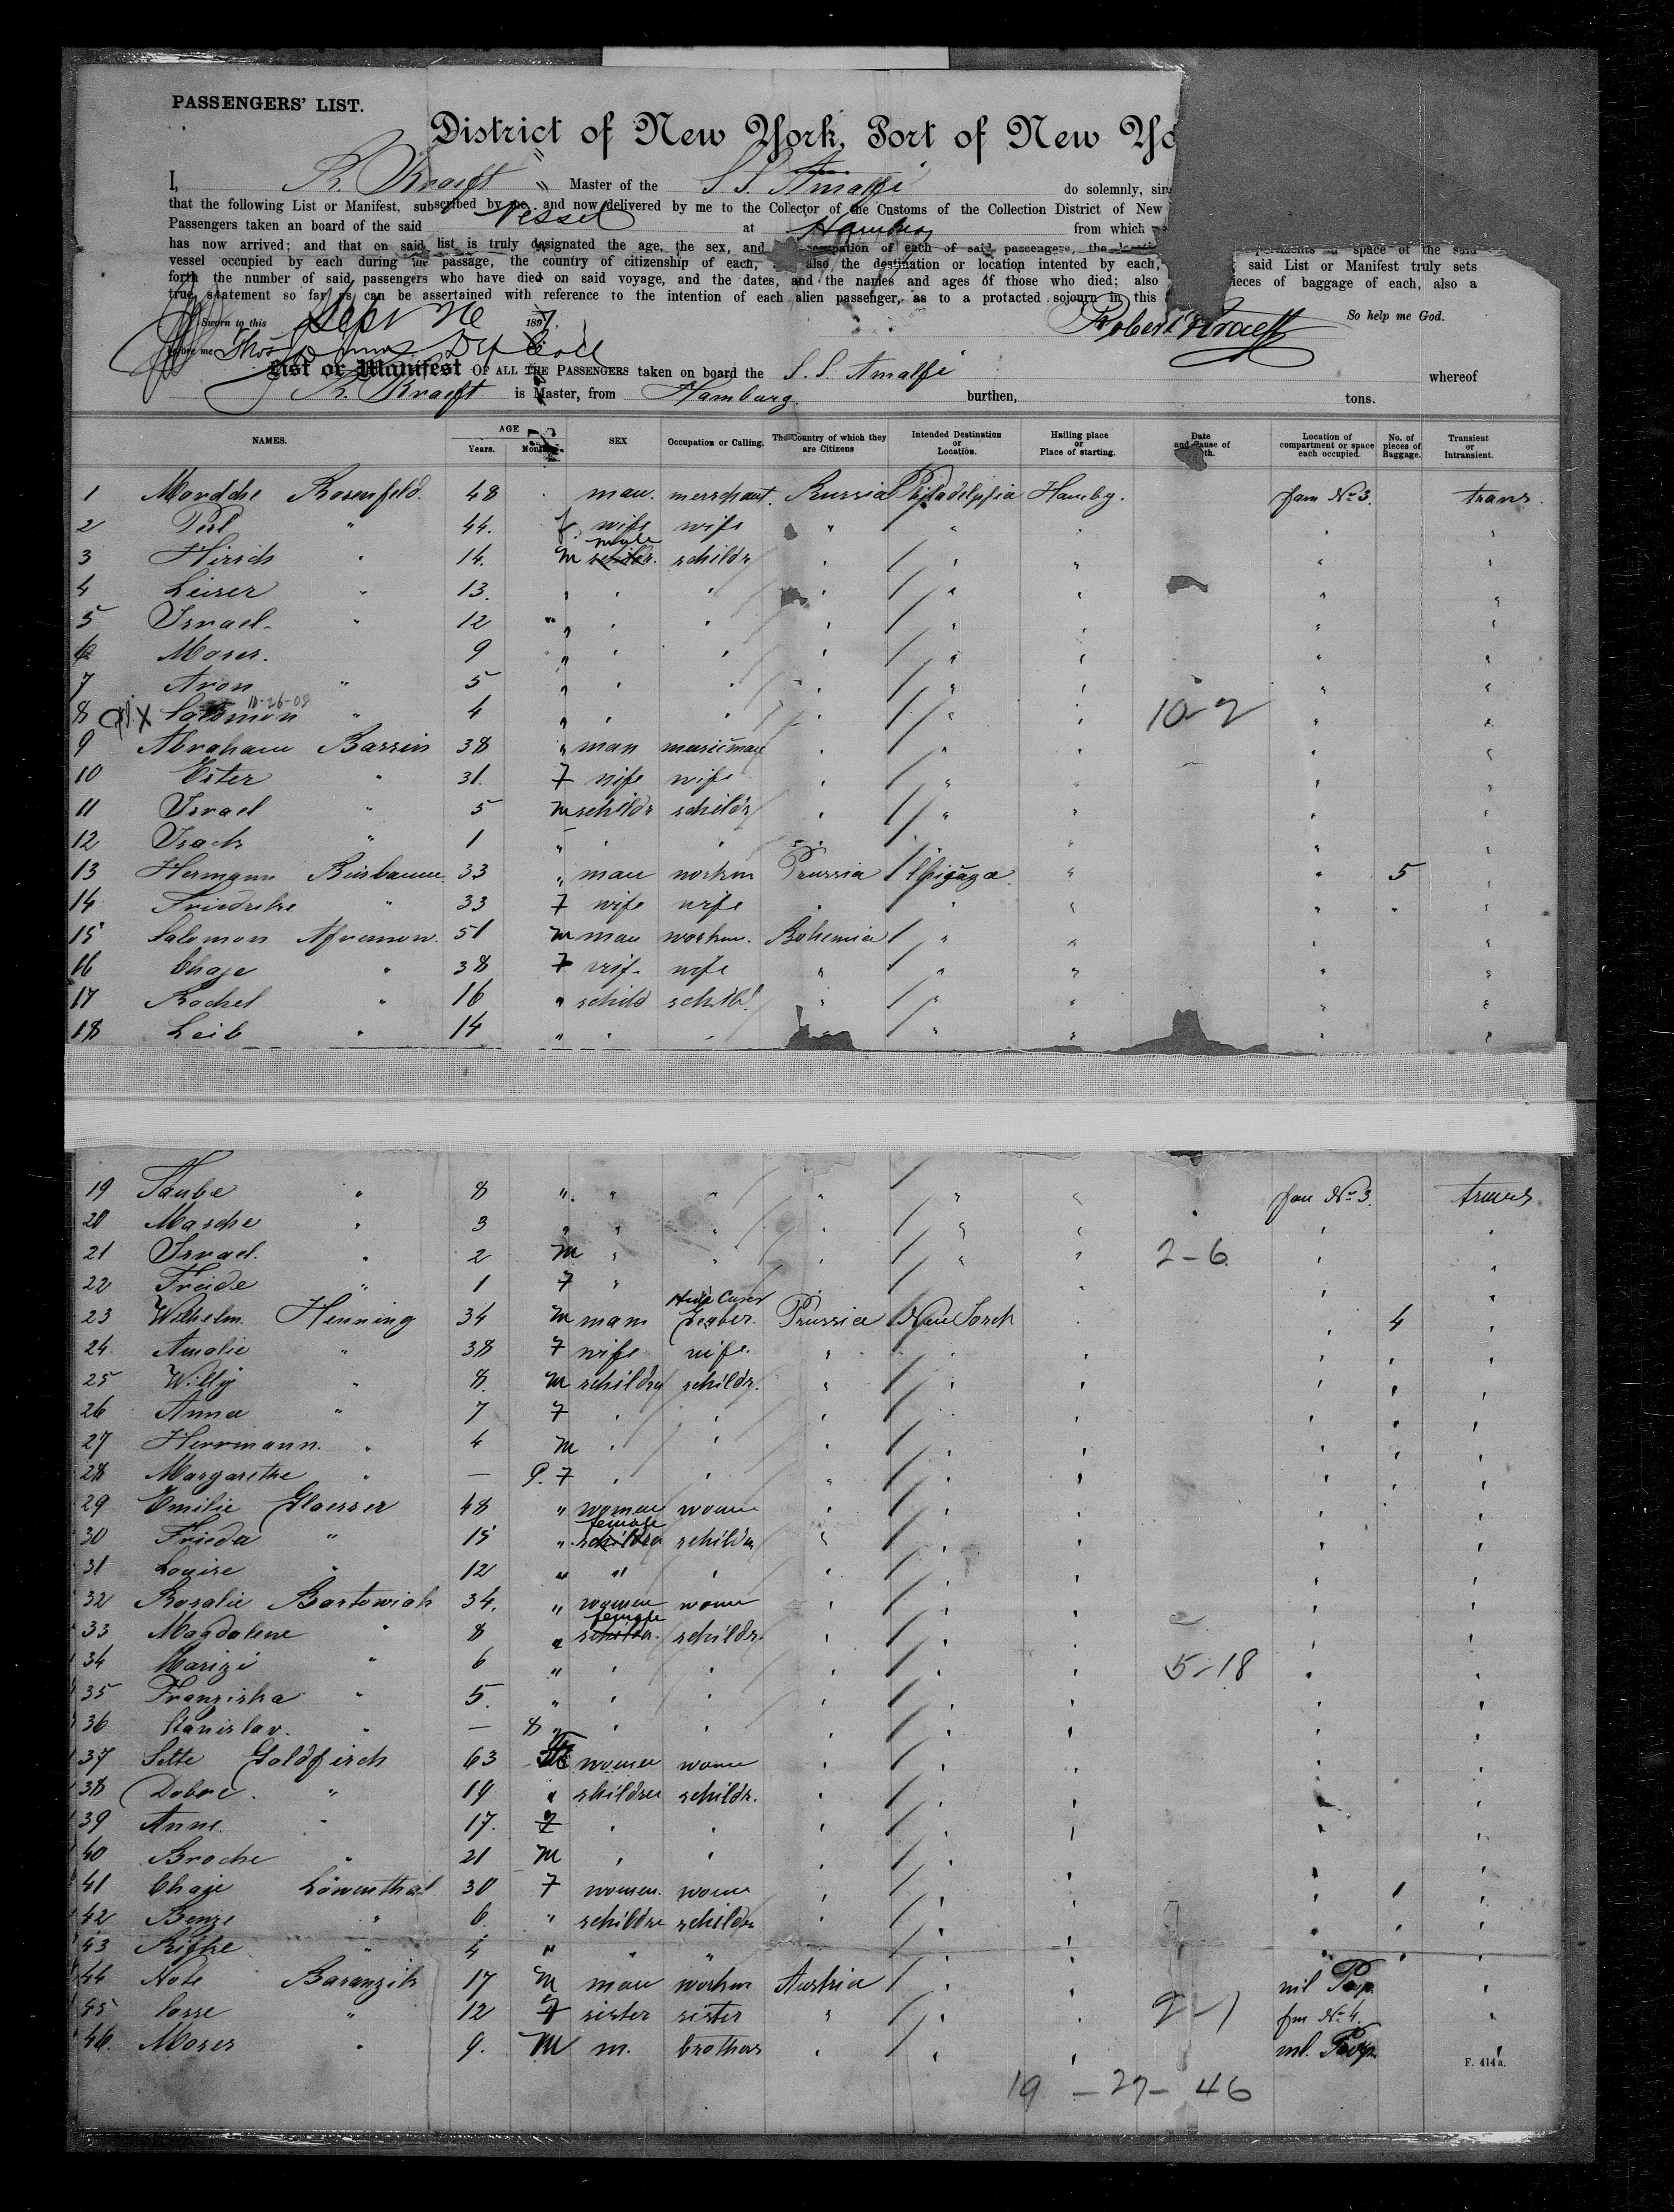 PASSENGERS' LIST.
District of New York, Port of New Yo
I, R. Kraeft Master of the S. S. Amalfi do solemnly, sin
that the following List or Manifest, subscribed by me, and now delivered by me to the Collector of the Customs of the Collection District of New
Passengers taken an board of the said Vessel at Hamburg from which
has now arrived; and that on said list is truly designated the age, the sex, and occupation of each of said passengers, the space of the said
vessel occupied by each during the passage, the country of citizenship of each, also the destination or location intented by each, said List or Manifest truly sets
forth the number of said passengers who have died on said voyage, and the dates, and the names and ages of those who died; also pieces of baggage of each, also a
true statement so far as can be assertained with reference to the intention of each alien passenger, as to a protacted sojourn in this
Sworn to this Sept 26 189 Robert Kraeft So help me God.
before me Thos Dep Coll
List or Manifest OF ALL THE PASSENGERS taken on board the S. S. Amalfi whereof
R. Kraeft is Master, from Hamburg. burthen, tons.
NAMES. AGE Years. Months SEX Occupation or Calling. The Country of which they are Citizens Intended Destination or Location. Hailing place or Place of starting. Date and Cause of Location of compartment or space each occupied. No. of pieces of Baggage. Transient or Intransient.
1 Mordche Rosenfeld. 48 man. merschant. Russia Philadelphia Hambg. fam No 3. trans.
2 Perl " 44. f. wife wife " " "
3 Hirsch " 14. m male schildr. schildr " " "
4 Leiser " 13. " " " " " "
5 Israel. " 12 " " " " " "
6 Moses. 9 " " " " " "
7 Aron " 5 " " " " " "
8 X Salomon 10-26-08 " 4 " " " " " " 10-2
9 Abraham Barrin 38 " man musicman " " "
10 Ester " 31. F wife wife " " "
11 Israel " 5 m schildr schildr " " "
12 Isach " 1 " " " " " "
13 Hermann Birnbaum 33 " man workm Prussia Chicaga " " 5 "
14 Friedrike " 33 F wife wife " " " " "
15 Salomon 51 m man workm. Bohemia " " " "
16 Chaje " 38 F wif. wife " " " " "
17 Rochel " 16 " schild schild " " " " "
18 Leib " 14 " " " " " " " "
19 Taube " 8 " " " " " " fam No 3. trans
20 Masche " 3 " " " " " " " "
21 Israel. " 2 m " " " " " 2-6 " "
22 Freide " 1 F " " "
23 Wilhelm Henning 34 m man Prussia New Yorck 4 "
24 Amalie " 38 F wife wife. " " " " " "
25 Willy " 8. m schildre schildr. " " " " " "
26 Anna " 7 F " " " " " " " "
27 Herrmann. " 4 m " " " " " " " "
28 Margarethe " — 9. F " " " " " " " "
29 Emilie Glaesser 48 " women women " " " " "
30 Frieda " 15 " female schildre schildre " " " " "
31 Louise " 12 " " " " " " " "
32 Rosalie Bartowiak 34. " women women " " " " "
33 Magdalene " 8 " female schildr. schildr. " " " " "
34 Marizi " 6 " " " " " " 5-18 " "
35 Franziska " 5. " " " " " " " "
36 Stanislav. " — 8 " " " " " " " "
37 Sette Goldfisch 63 women women " " " " "
38 Dobre. " 19 " schildre schildr. " " " " "
39 Anne. " 17. F " " " " " " "
40 Broche " 21 m " " " " " " "
41 Chaje Löwenthal 30 F women. women " " " " 1 "
42 Benze " 6. " schildre schildre " " " " " "
43 Rifke " 4 " " " " " " " " "
44 Note Baranzik 17 m man workm Austria " " "
45 " 12 F sister sister " " " 2-1 fm No 4. "
46. Moses " 9. M m. brothers " " " "
F. 414a.
19 — 27 — 46